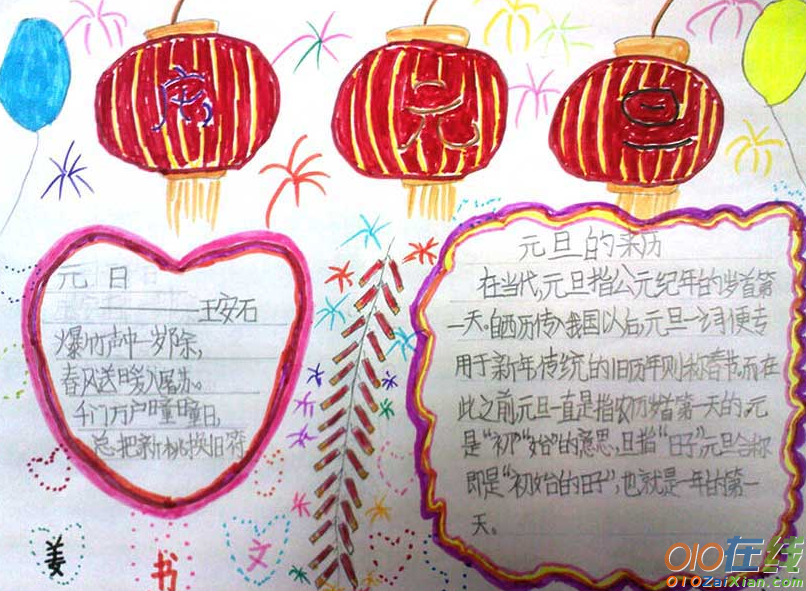 庆 元 旦
元 日
————王安石
爆竹声中一岁除,
春风送暖入屠苏。
千门万户曈曈日,
总把新桃换旧符
元旦的来历
在当代,元旦指公元纪年的岁首第
一天。自西历传入我国以后,元旦一词便专
用于新年,传统的旧历年则称春节,而在
此之前,元旦一直是指农历岁首第一天的。元
是“初”“始”的意思,旦指“日子”,元旦合称
即是“初始的日子”,也就是一年的第一
天。
姜 书 文
010在线
010ZaiXian.com